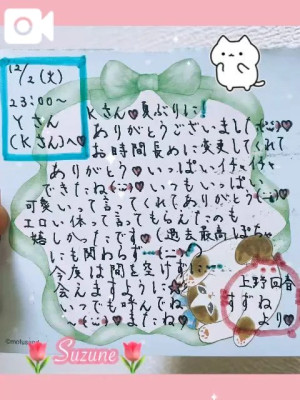 12/2(火)
23:00〜
Yさん
(Kさん)へ♡
Kさん♡夏ぶりに!
ありがとうございました
お時間長めに変更してくれて
ありがとう♡いっぱいイチャイチャ
できたね♡いつもいっぱい
可愛いって言ってくれてありがとう
エロい体って言ってもらえたのも
嬉しかったです♡(過去最高ぽちゃ
にも関わらず
今度は間を空けずに
会えますように
いつでも呼んでね
またね♡
上野回春
すずね
より♡
©mofusand
Suzune